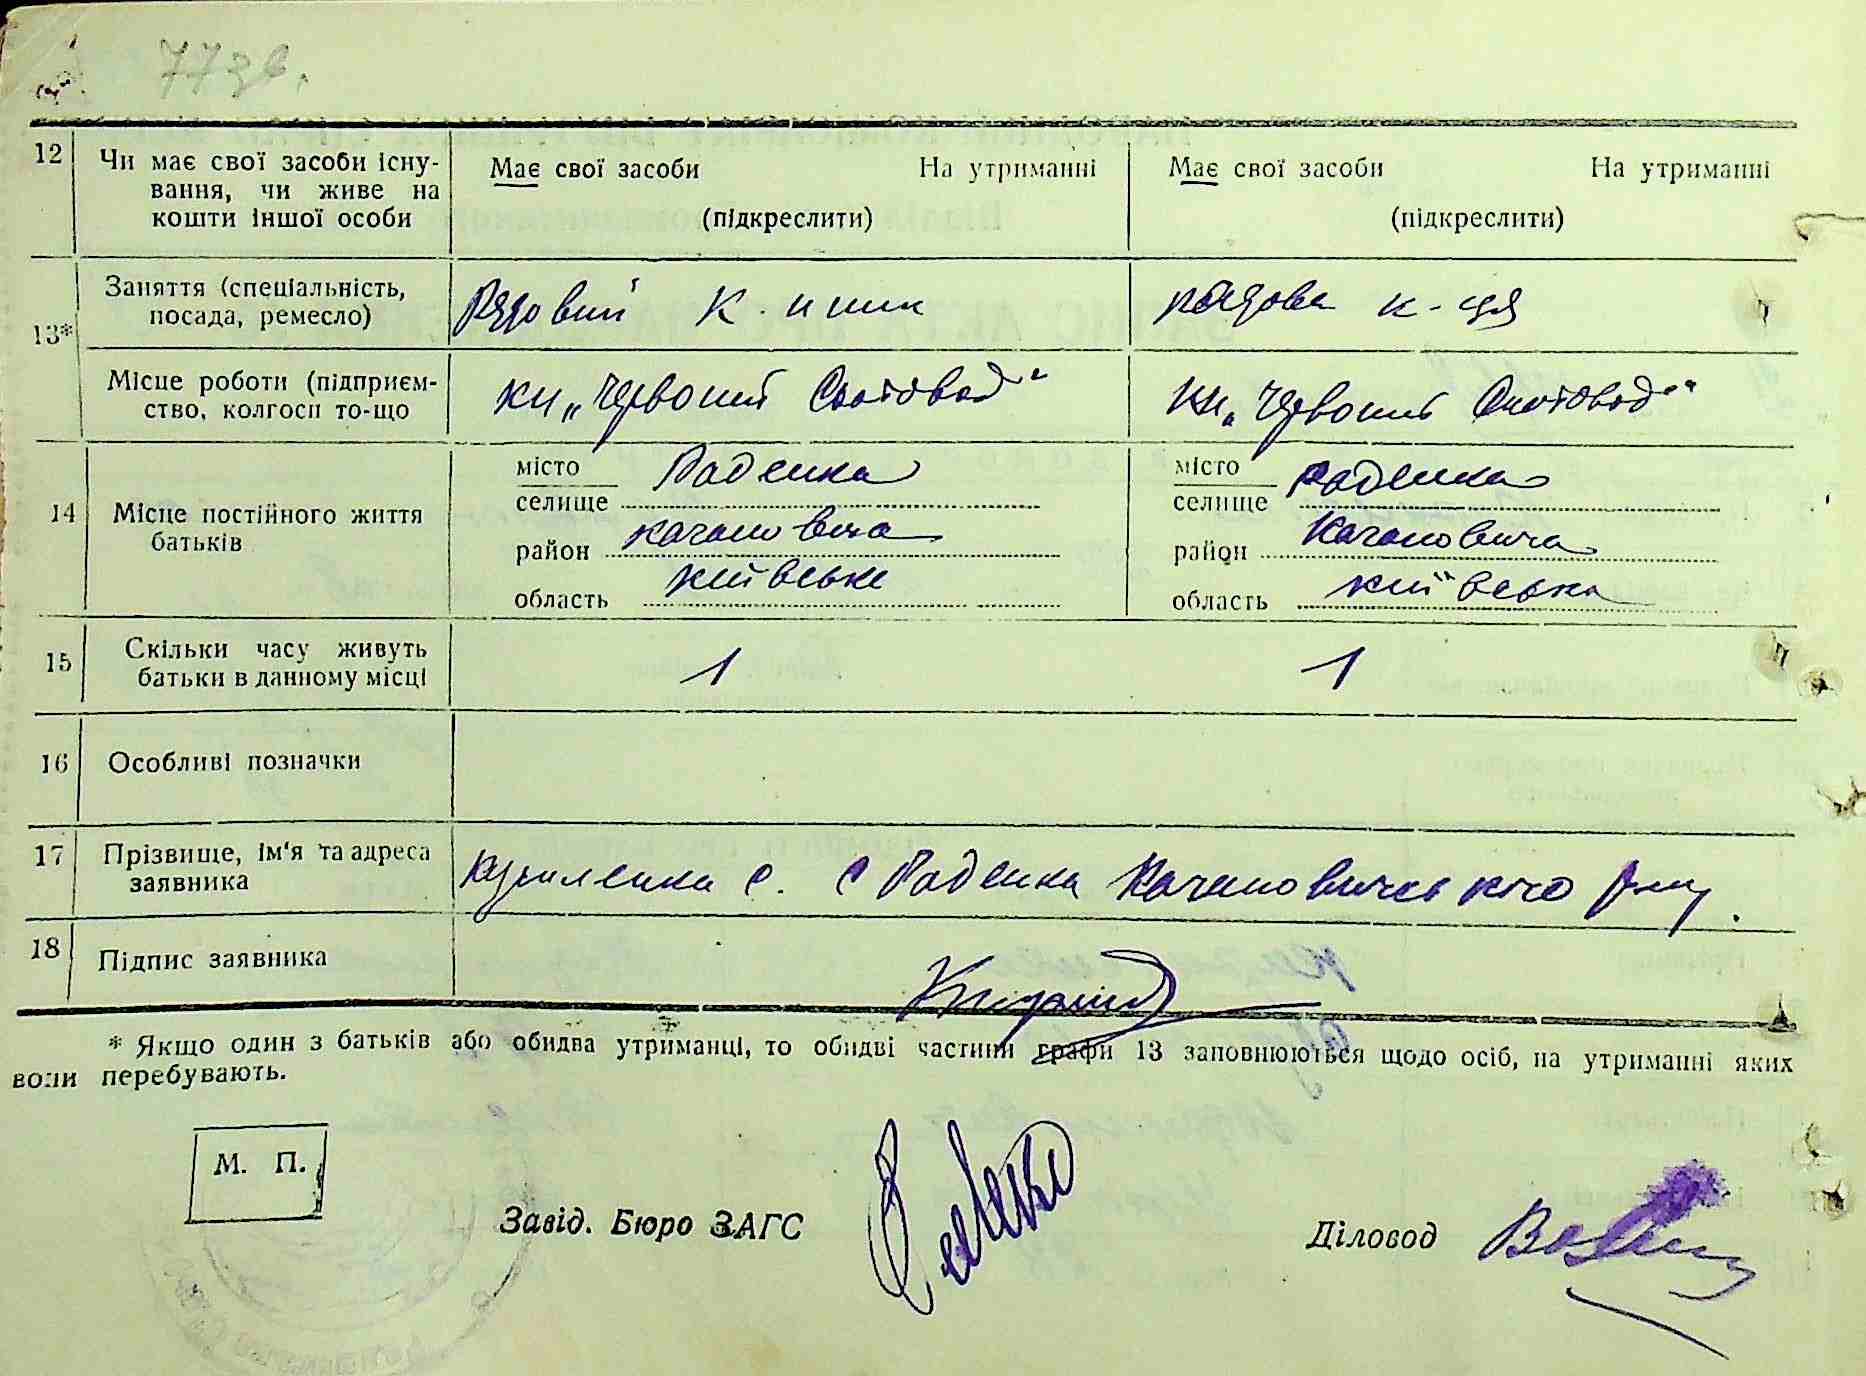 77зв.
12 Чи має свої засоби існу- Має свої засоби На утриманні Має свої засоби На утриманні
вання, чи живе на
кошти іншої особи (підкреслити) (підкреслити)
13* Заняття (спеціальність, Рядовий к. рядова к-ця
посада, ремесло)
Місце роботи (підприєм- кп „Червоний Скотовод" кп „Червоний Скотовод"
ство, колгосп то-що
14 Місце постійного життя місто Раденка місто Раденка
батьків селище селище
район Качановича район Качановича
область Київське область Київська
15 Скільки часу живуть 1 1
батьки в данному місці
16 Особливі позначки
17 Прізвище, ім'я та адреса с. с Раденка Качановичського р-ну.
заявника
18 Підпис заявника
* Якщо один з батьків або обидва утриманці, то обидві частини графи 13 заповнюються щодо осіб, на утриманні яких
вони перебувають.
М. П.
Завід. Бюро ЗАГС Діловод